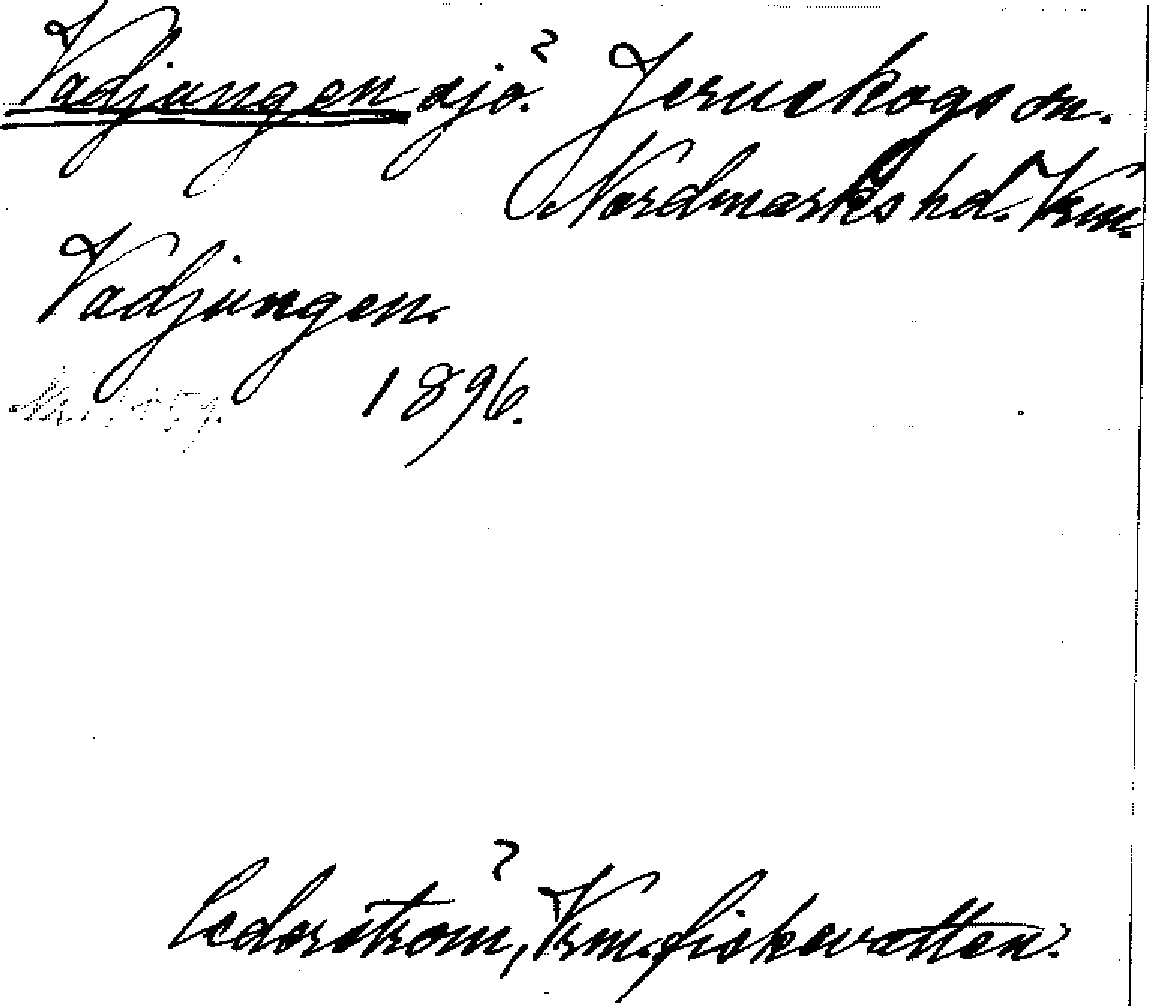 Vadjungen sjö. Jernskogs sn.
Nordmarks hd. Vrm.
Vadjungen.
1896.
Cederström, Vrm. fiskevatten.